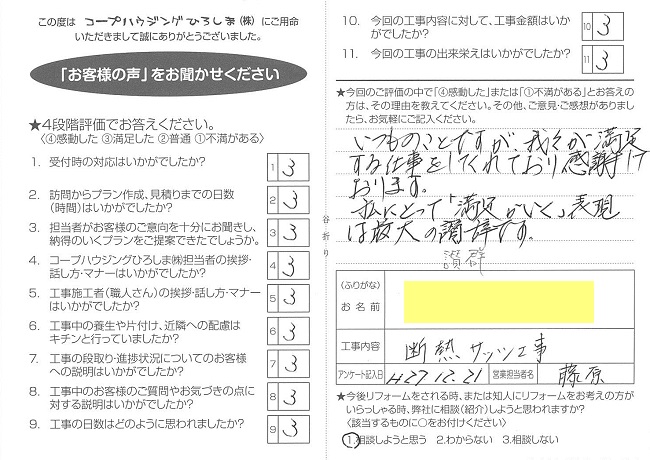 この度は コープハウジングひろしま(株) にご用命
いただきまして誠にありがとうございました。
「お客様の声」をお聞かせください
★4段階評価でお答えください。
〈④感動した ③満足した ②普通 ①不満がある〉
1. 受付時の対応はいかがでしたか? 1 3
2. 訪問からプラン作成、見積りまでの日数
(時間)はいかがでしたか? 2 3
3. 担当者がお客様のご意向を十分にお聞きし、
納得のいくプランをご提案できたでしょうか。 3 3
4. コープハウジングひろしま㈱担当者の挨拶・
話し方・マナーはいかがでしたか? 4 3
5. 工事施工者(職人さん)の挨拶・話し方・マナー
はいかがでしたか? 5 3
6. 工事中の養生や片付け、近隣への配慮は
キチンと行っていましたか? 6 3
7. 工事の段取り・進捗状況についてのお客様
への説明はいかがでしたか? 7 3
8. 工事中のお客様のご質問やお気づきの点に
対する説明はいかがでしたか? 8 3
9. 工事の日数はどのように思われましたか? 9 3
谷折り
10. 今回の工事内容に対して、工事金額はいか
がでしたか? 10 3
11. 今回の工事の出来栄えはいかがでしたか? 11 3
★今回のご評価の中で「④感動した」または「①不満がある」とお答えの
方は、その理由を教えてください。その他、ご意見・ご感想がありまし
たら、お気軽にご記入ください。
いつものことですが、我々が満足
する仕事をしてくれており感謝して
おります。
私にとって「満足がいく」表現
は最大の讃辞です。
讃辞
(ふりがな)
お名前
工事内容 断熱サッシ工事
アンケート記入日 H27.12.21 営業担当者名 藤原
★今後リフォームをされる時、または知人にリフォームをお考えの方が
いらっしゃる時、弊社に相談(紹介)しようと思われますか?
〈該当するものに○をお付けください〉
1.相談しようと思う 2.わからない 3.相談しない